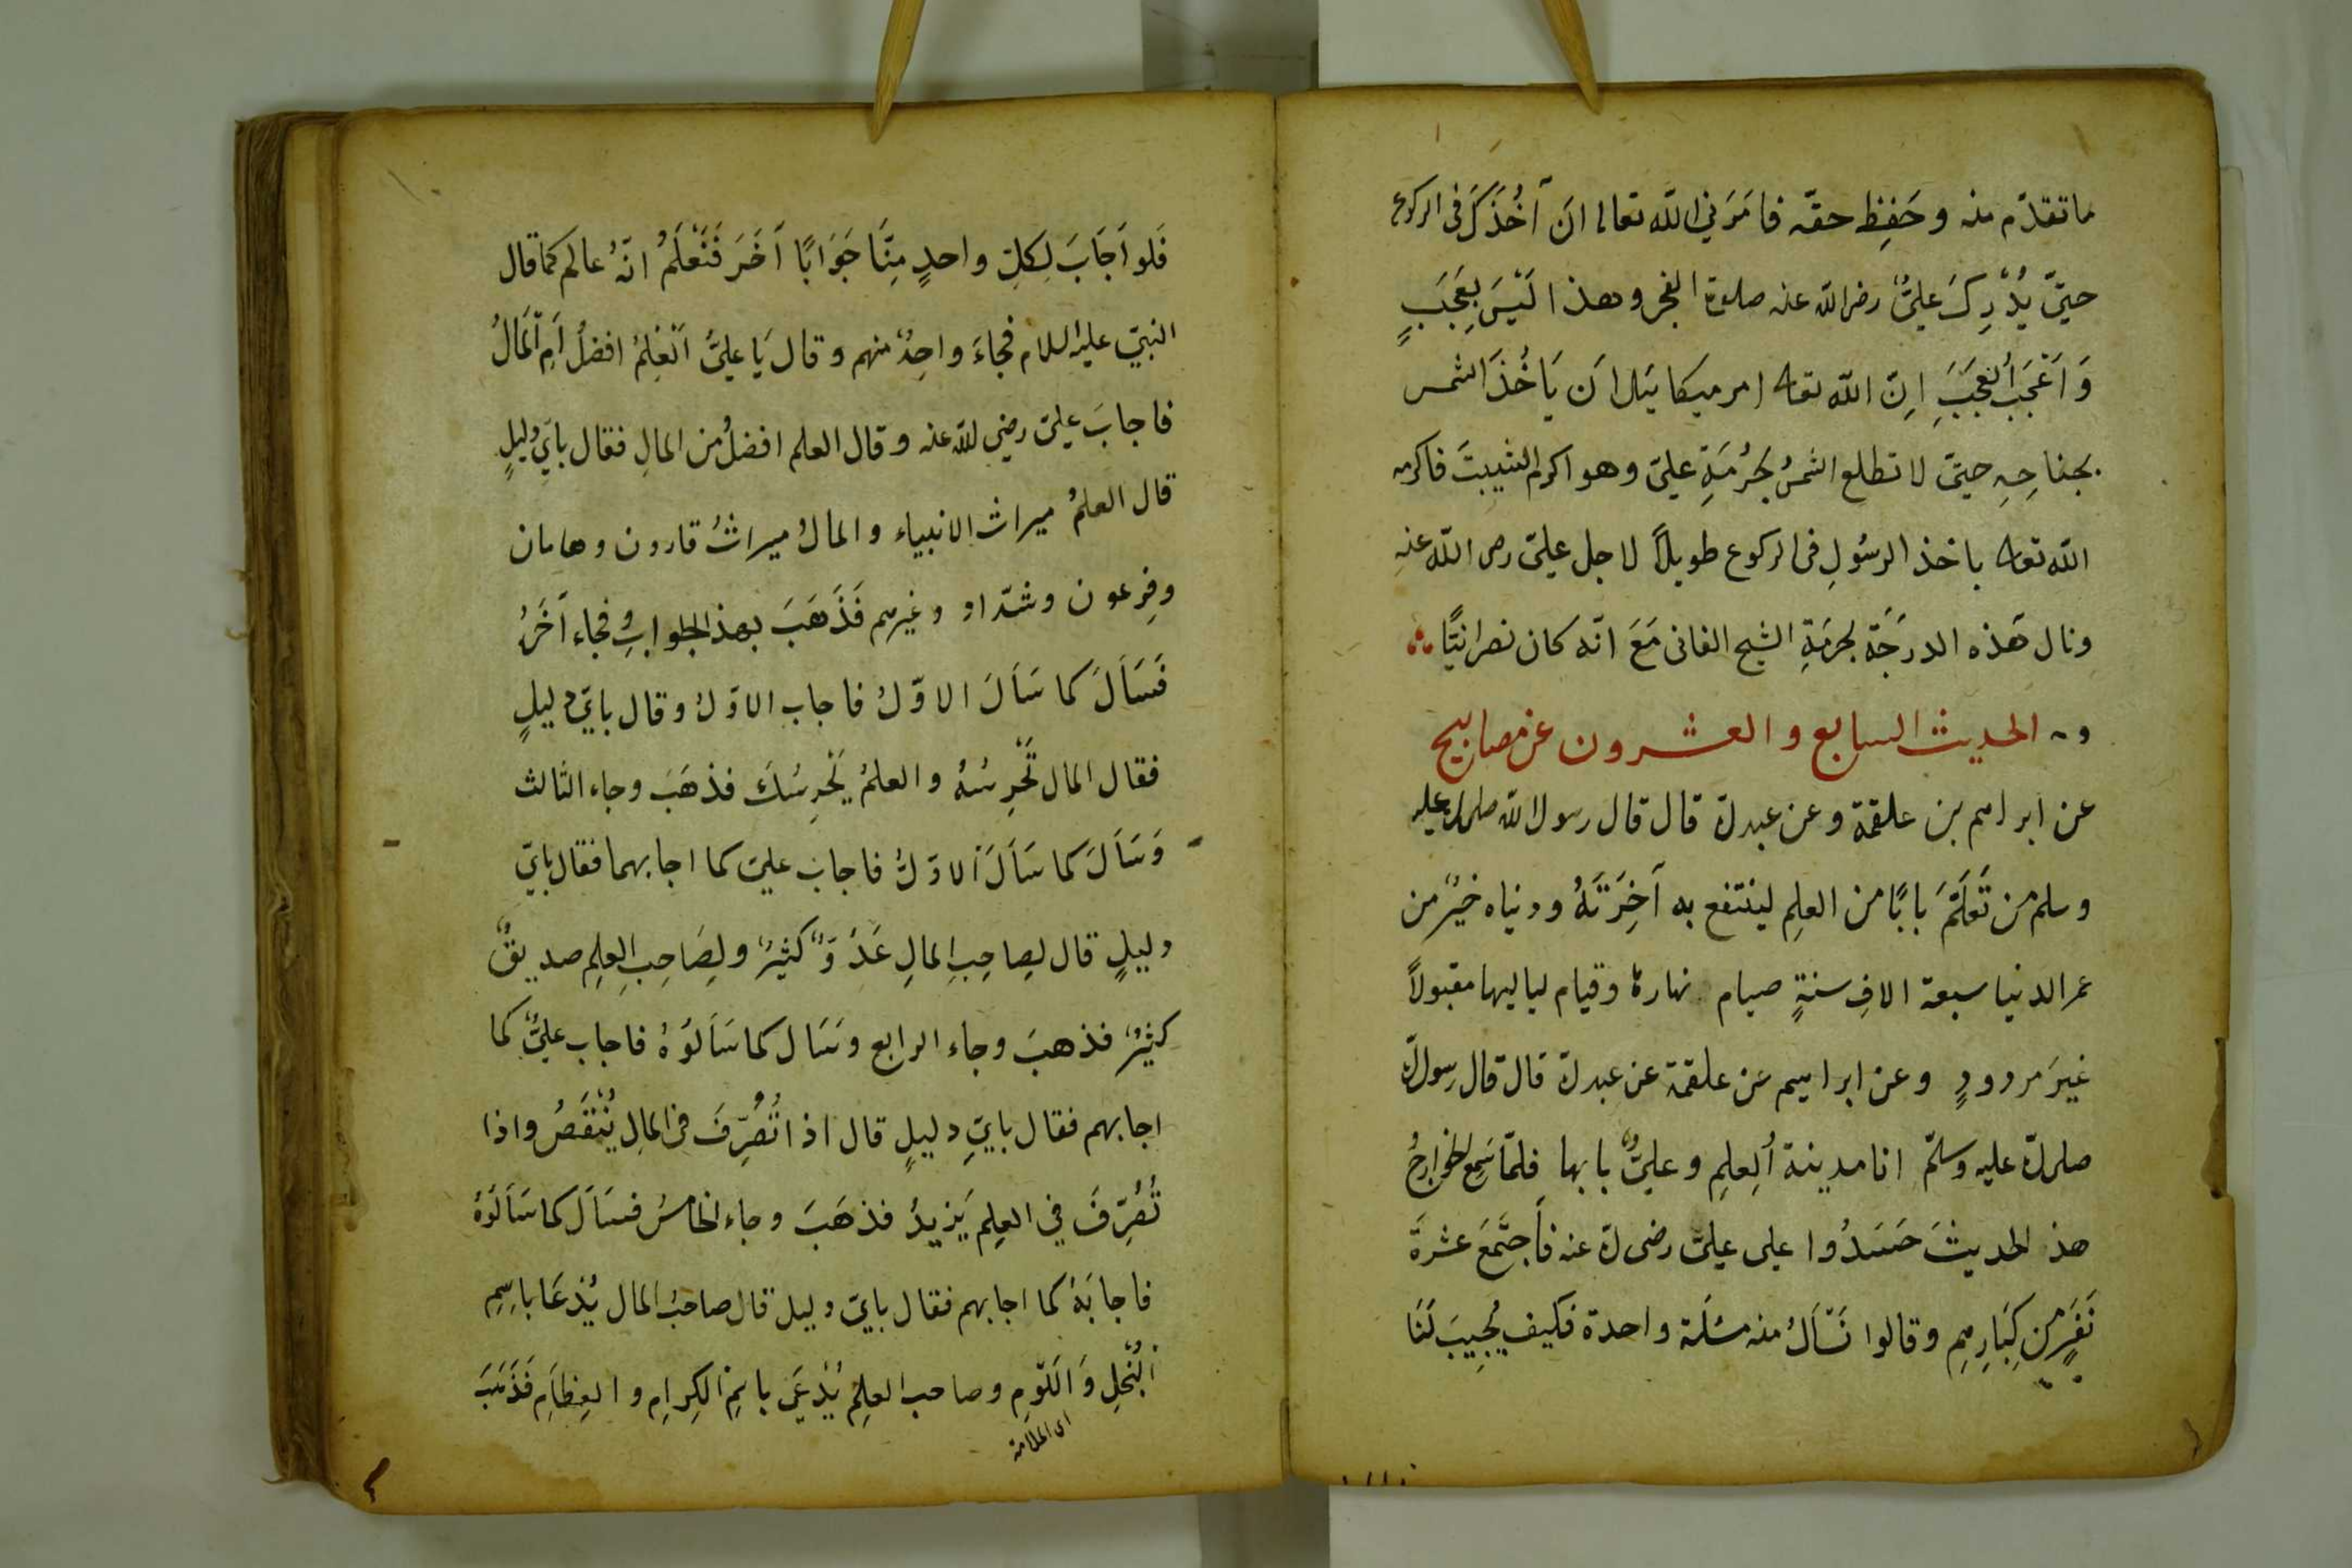 ما تقدّم منه وحَفِظ حقّه فامَرَني الله تعالى ان آخُذَكَ فى الركوع
حتىّ يُدْرِكَ علىٌّ رضى الله عنه صلوة الفجر وهذا لَيْسَ بِعَجَبٍ
وَاَعْجَبُ العَجَبَ اِنّ الله تعالى امر ميكائيل اَن يَاخُذَ الشمس
بجناحِهِ حتىّ لا تطلع الشمسُ لحُرْمَةِ علىّ وهو اكرم الشيبتَ فاكرمه
الله تعالى باخذ الرسُولِ فى الركوع طويلاً لاجل علىّ رضى الله عنه
ونال هَذه الدرَجَة لحرمَةِ الشيخ الفانى مَعَ انّه كان نصرانيًّا
الحديث السابع والعشرون عن مصابيح
عن ابراهيم بن علقمة وعن عبد الله قال قال رسول الله صلى الله عليه
وسلم من تَعَلَّمَ بابًا من العلِم لينتفع به آخِرَتَهُ ودنياه خيرٌ من
عمر الدنيا سبعة الافِ سنةٍ صيام نهارهُ وقيام لياليها مقبولاً
غيرَ مردودٍ وعن ابراهيم عن علقمة عن عبد الله قال قال رسول الله
صلى الله عليه وسلّم انا مدينة اُلعِلِم وعلىٌّ بابها فلمّا سَمِع الخوارجُ
هذ الحديثَ حَسَدُوا على علىّ رضى الله عنه فاَجتَمَعَ عشرةَ
نَفَرٍ من كِبَارِهِمِ وقالوا نَسْأَلُ منه مسْئَلة واحدة فكيف يُجِيبَ لَنَا
فَلو اَجَابَ لِكلِّ واحدٍ مِنَّا جَوَابًا آخَرَ فَنَعْلَمُ انّهُ عالم كما قال
النبىّ عليه السلام فجاءَ واحِدٌ منهم وقال يَا علىُّ اَلْعِلمُ افضلُ اَمِ اْلمَالُ
فاجابَ علىّ رضى الله عنه وقال العلم افضلُ من المالِ فقال باىّ دليلٍ
قال العلمُ ميراث الانبياء والمالُ ميراثُ قارون وهامان
وفِرعون وشدّاد وغيرهم فَذَهَبَ بهذ الجوابِ فجاء آخَرُ
فَسَأَلَ كما سَأَلَ الاوّلُ فاجاب الاوّلُ وقال باىّ دليلٍ
فقال المال تَحْرِسُهُ والعلمُ يَحْرِسُكَ فذهَبَ وجاء الثالث
وَسَأَلَ كما سَأَلَ اْلاوّلُ فاجاب علىّ كما اجابهما فقال باىّ
دليلٍ قال لِصاحِبِ المالِ عَدُوٌّ كثيرٌ ولِصَاحِبِ العلِم صديقٌ
كثيرٌ فذهبَ وجاء الرابع وسَال كما سَأَلوُهُ فاجاب علىٌّ كما
اجابهم فقال باىِّ دليلٍ قال اذا تُصُرِّفَ فى المالِ يُنْقَصُ واذا
تُصُرِّفَ في العلِم يَزيدُ فذهَبَ وجاء الخامسُ فسَأَلَ كما سَأَلُوَهُ
فاجابَهُ كما اجابهم فقال باىّ دليل قال صاحبُ المال يُدْعَا باسِمِ
اْلبُخْلِ وَاللَّوْمِ وصاحب العلِمِ يُدْعَىَ باسْمِ الكِرامِ والعِظَاَمِ فَذَهَبَ
اى الملامة